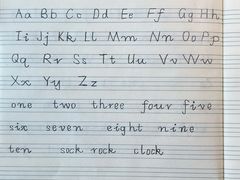 Aa Bb Cc Dd Ee Ff Gg Hh
Ii Jj Kk Ll Mm Nn Oo Pp
Qq Rr Ss Tt Uu Vv Ww
Xx Yy Zz
one two three four five
six seven eight nine
ten sock rock clock